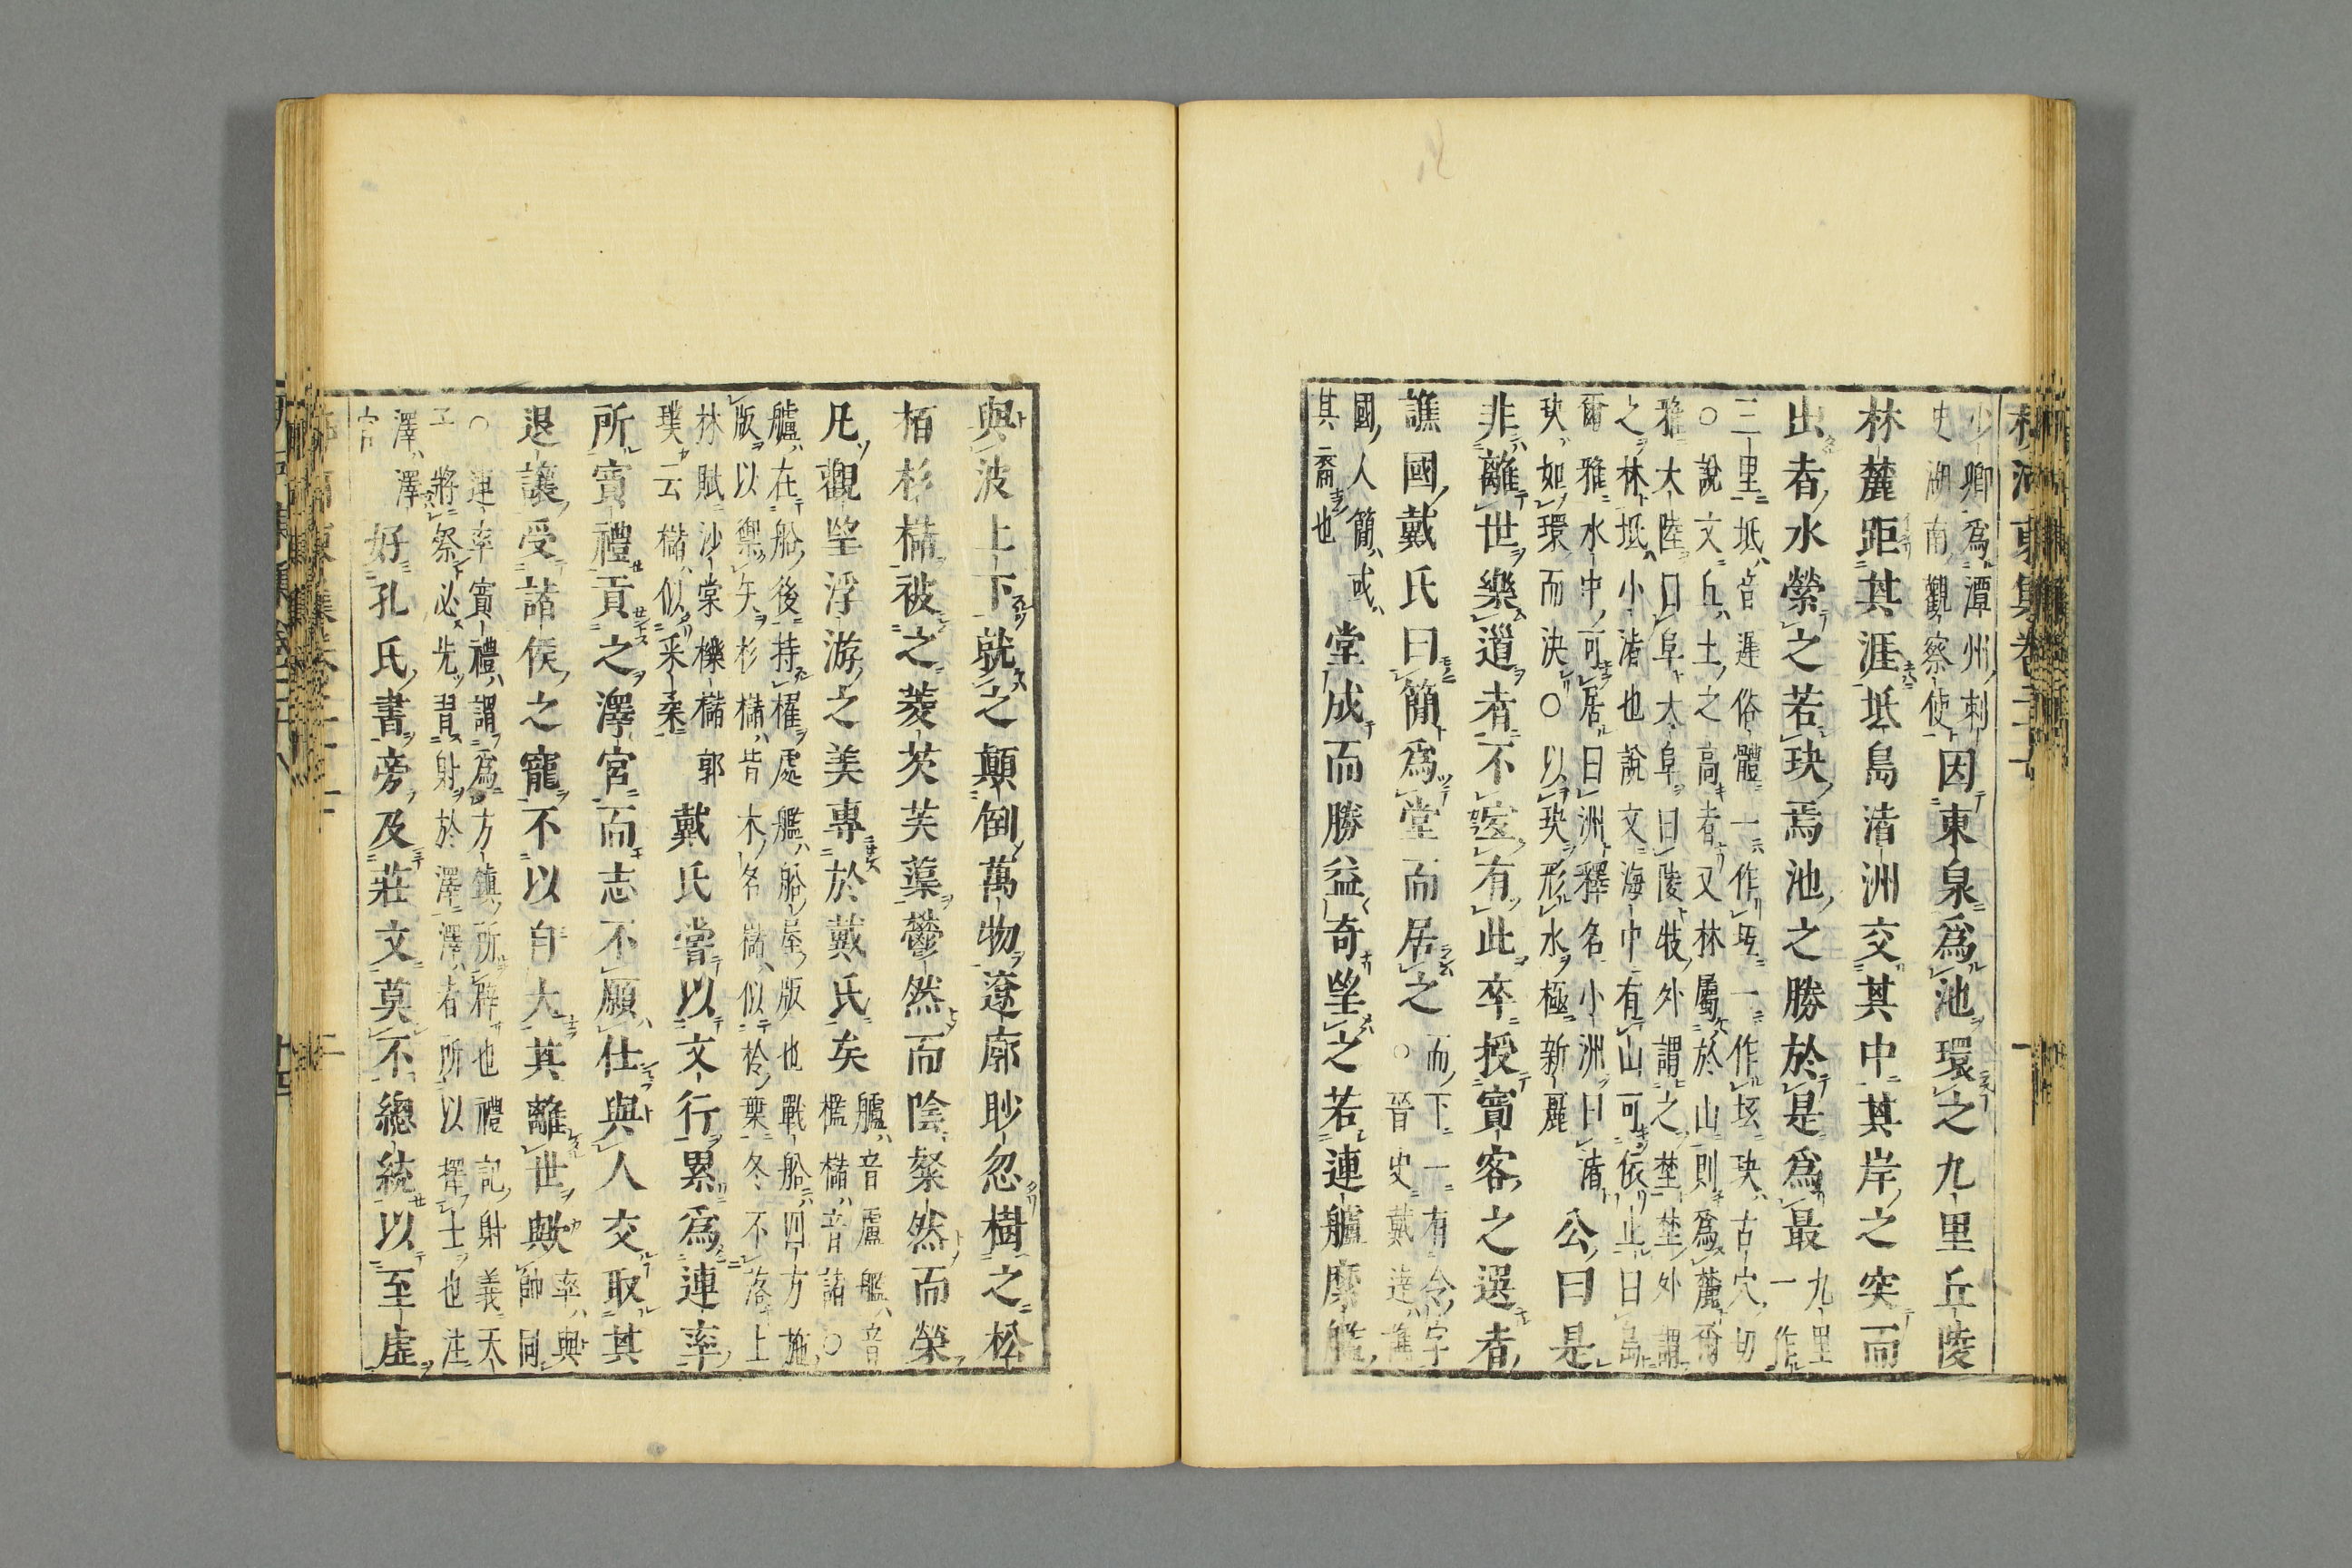 少卿爲潭州刺
史湖南觀察使
因東泉爲池環之九里丘陵
林麓距其涯坻島渚洲交其中其岸之突而
出者水縈之若玦焉池之勝於是爲最
九里
一作
三里坻音遲俗體一作坘一作坛玦古穴切
○說文丘土之高者又林屬於山則爲麓爾
雅大陸曰阜大阜曰陵牧外謂之埜埜外謂
之林坻小渚也說文海中有山可依止曰島
爾雅水中可居曰洲釋名小洲曰渚
玦如環而決○以玦形水極新麗
公曰是
非離世樂道者不宜有此卒授賓客之選者
譙國戴氏曰簡爲堂而居之
而下一有令字
○晉史戴逵譙
國人簡或
其裔也
堂成而勝益奇望之若連艫縻艦
與波上下就之顛倒萬物遼廓眇忽樹之松
栢杉櫧被之菱芡芙蕖鬱然而陰粲然而榮
凡觀望浮游之美專於戴氏矣
艫音盧艦音
檻櫧音諸○
艫在船後持櫂處艦船屋版也戰船四方施
版以禦矢杉櫧皆木名櫧似柃葉冬不落上
林賦沙棠櫟櫧郭
璞云櫧似釆桑
戴氏嘗以文行累爲連率
所賓禮貢之澤宮而志不願仕與人交取其
退讓受諸侯之寵不以自大其離世歟
率與
帥同
○連率賓禮謂爲方鎮所辟也禮記射義天
子將祭必先習射於澤澤者所以擇士也注
澤澤
宮
好孔氏書旁及莊文莫不總統以至虛